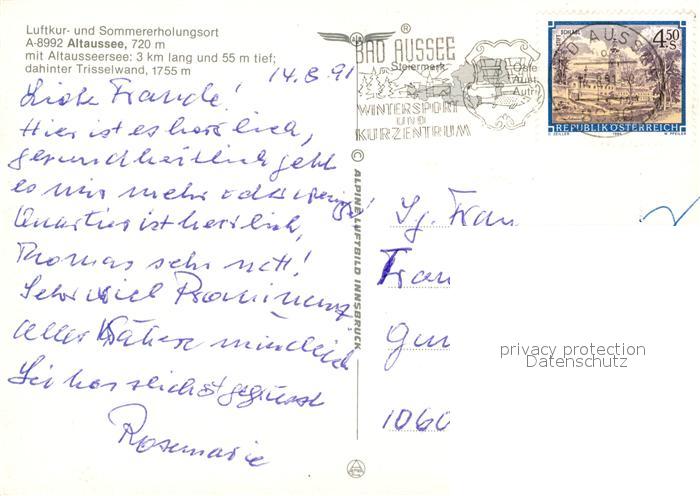 Luftkur- und Sommererholungsort
A-8992 Altaussee, 720 m
mit Altausseersee: 3 km lang und 55 m tief;
dahinter Trisselwand, 1755 m
14.8.91
Liebe Freunde!
Hier ist es herrlich,
gesundheitlich geht
es mir mehr oder weniger!
Quartier ist herrlich,
Thomas sehr nett!
Sehr viel Prominenz.
alles Nähere mündlich
Sei herzlichst gegrüsst
Rosemarie
®
BAD AUSSEE
Steiermark
WINTERSPORT
UND
KURZENTRUM
BAD AUSSEE
STIFT SCHLÄGL
4.50
S
REPUBLIK ÖSTERREICH
E. ZEILLER
W. PFEILER
© ALPINE LUFTBILD INNSBRUCK
Fran
1060
privacy protection
Datenschutz